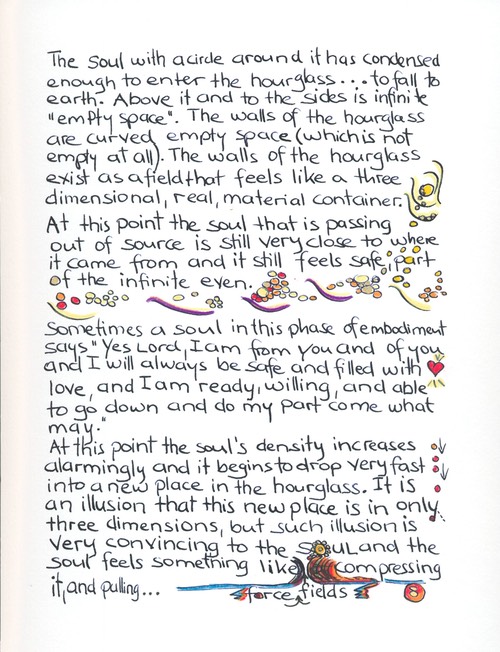 The Soul with a circle around it has condensed
enough to enter the hourglass... to fall to
earth. Above it and to the sides is infinite
"empty space". The walls of the hourglass
are curved empty space (which is not
empty at all). The walls of the hourglass
exist as a field that feels like a three
dimensional, real, material container.
At this point the soul that is passing
out of source is still very close to where
it came from and it still feels safe, part
of the infinite even.
Sometimes a soul in this phase of embodiment
says "Yes Lord, I am from You and of you
and I will always be safe and filled with
love, and I am ready, willing, and able
to go down and do my part come what
may."
At this point the soul's density increases
alarmingly and it begins to drop very fast
into a new place in the hourglass. It is
an illusion that this new place is in only
three dimensions, but such illusion is
very convincing to the soul and the
soul feels something like compressing
it, and pulling...
force fields